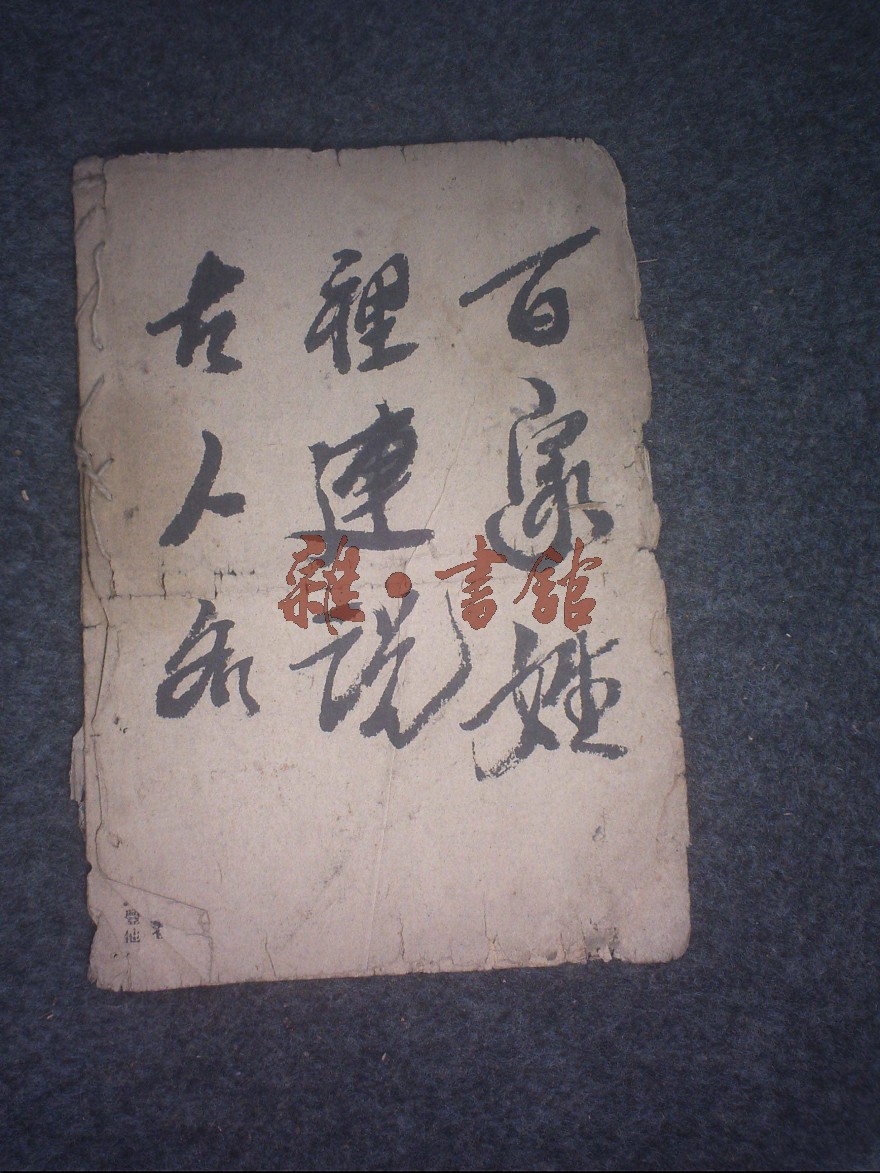 百家姓
裡連説
古人名
雜·書館